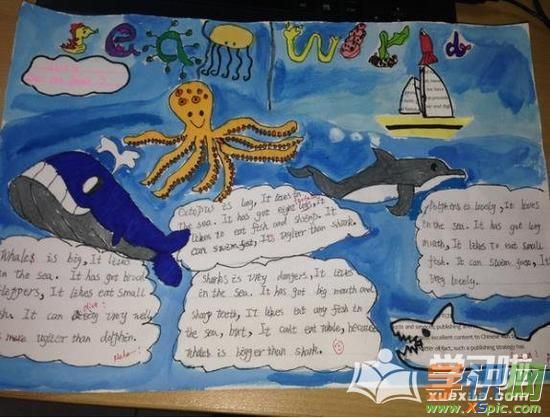 Sea world
Octopus is big, It lives in
the sea. It has got eight legs, it
likes to eat fish and shrimp. It
can swim fast, It's uglier than shark.
Dolphin's is lovely, It lives
in the sea. It has got big
mouth, It likes to eat small
fish. It can swim fast, It's
very lovely.
Whales is big, It lives
in the sea. It has got broad
flappers, It likes eat small
fish. It can dive very well
is more uglier than dolphin.
Sharks is very dangers, It lives
in the sea. It has got big mouth and
sharp teeth, It likes eat any fish in
the sea, but, It can't eat whale, because
whales is bigger than shark.
facts and services, publishing and
excellent content to Chinese
matter of fact, such a publishing strategy has
学习啦
xuexila.com
学识网
www.XSpic.com